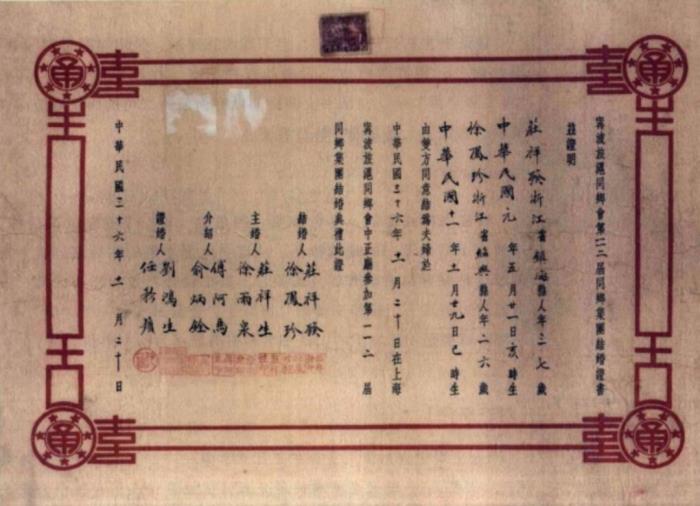 甯波旅滬同鄉會第一一二屆同鄉集團結婚證書
茲證明
莊祥發浙江省鎮海縣人年三七歲
中華民國元年五月廿一日亥時生
徐鳳珍浙江省紹興縣人年二六歲
中華民國十一年十一月廿九日巳時生
由雙方同意結為夫婦於
中華民國三十六年十一月二十日在上海
甯波旅滬同鄉會中正廳參加第一一二屆
同鄉集團結婚典禮此證
結婚人 莊祥發
徐鳳珍
主婚人 莊祥生
徐雨泉
介紹人 傅阿馬
俞炳銓
證婚人 劉鴻生
任矜蘋
中華民國三十六年十一月二十日